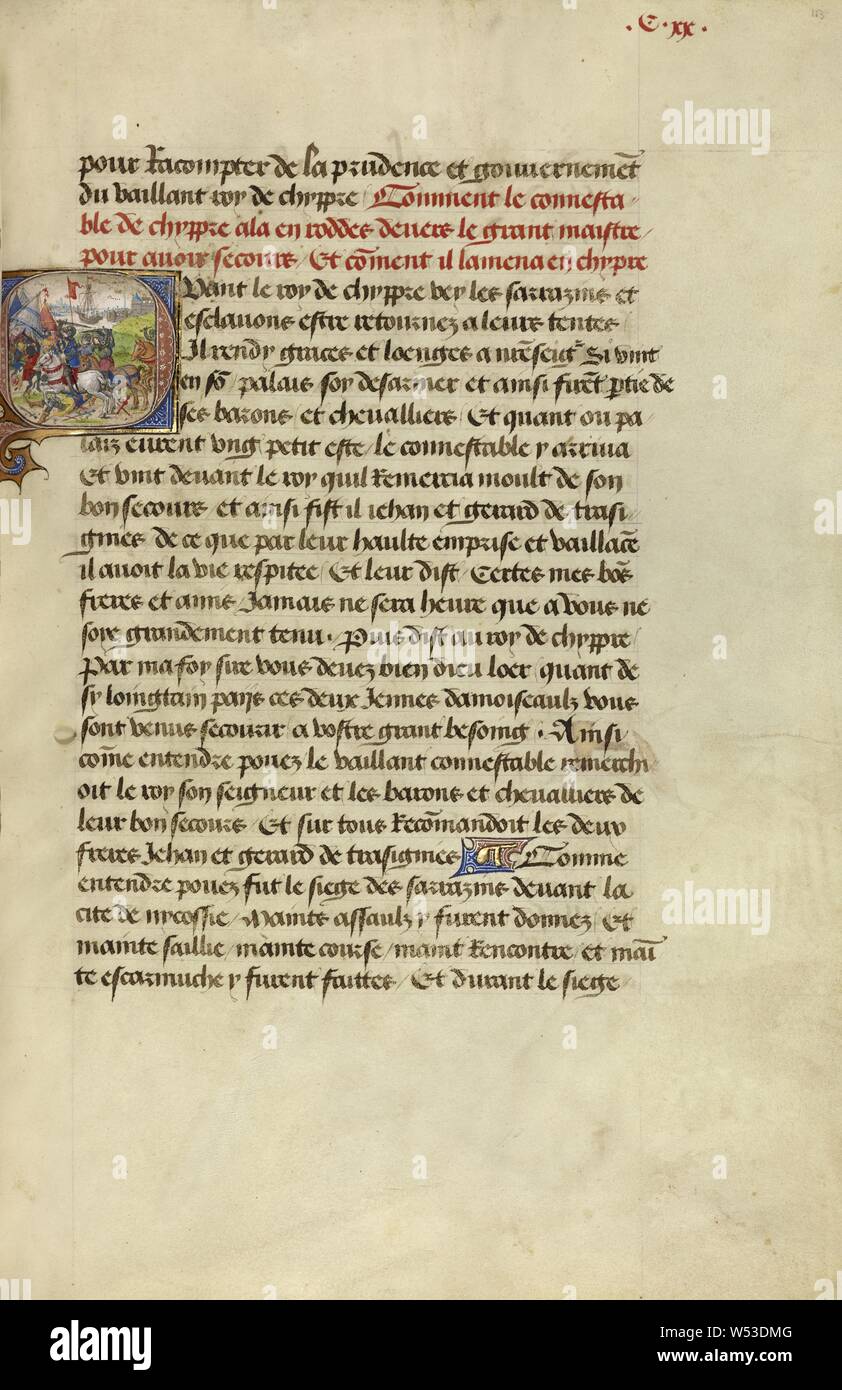 .C.xx.
113
pour Racompter de la prudence et gouvernemēt
du vaillant roy de chyppre / Comment le connesta/
ble de chyppre ala en roddes devers le grant maistre /
pour avoir secours / Et cōment il lamena en chypre
Quant le roy de chyppre vey les sarrazins et
esclavons estre retournez a leurs tentes
Il rendy graces et loenges a nr̄e seigr Si vint
en sō palais soy desarmer et ainsi firēt ptie de
ses barons et chevalliers / Et quant ou pa/
laiz eurent ung petit este / le connestable y arriva
Et vint devant le roy quil Remercia moult de son
bon secours et ainsi fist il iehan et gerard de trasi/
gnies de ce que par leur haulte emprise et vaillāce
il avoit la vie respitee / Et leur dist / Certes mes bōs
freres et amis Jamais ne sera heure que a vous ne
soye grandement tenu . Puis dist au roy de chyppre /
Par ma foy sire vous devez bien dieu loer quant de
sy loingtain pays ces deux Jennes damoiseaulx vous
sont venus secourir a vostre grant besoing . Ainsi
cōme entendre povez le vaillant connestable remerchi
oit le roy son seigneur et les barons et chevalliers de
leur bon secours / Et sur tous Recōmandoit les deux
freres Jehan et gerard de trasignies / Comme
entendre povez fut le siege des sarrazins devant la
cite de nycossie / Maints assaulx y furent donnez Et
mainte saillie / mainte course / maint Rencontre / et maī
te escarmuche y furent faittes / Et durant le siege /
alamy
a
Image ID: W53DMG
www.alamy.com